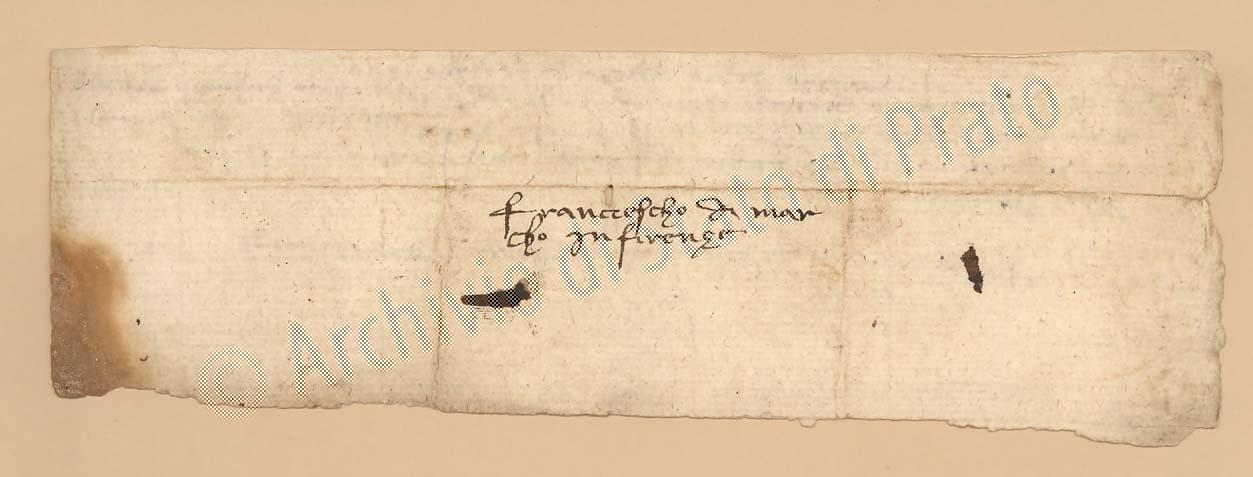 Franceescho di mar
cho in firenze
© Archivio di Stato di Prato